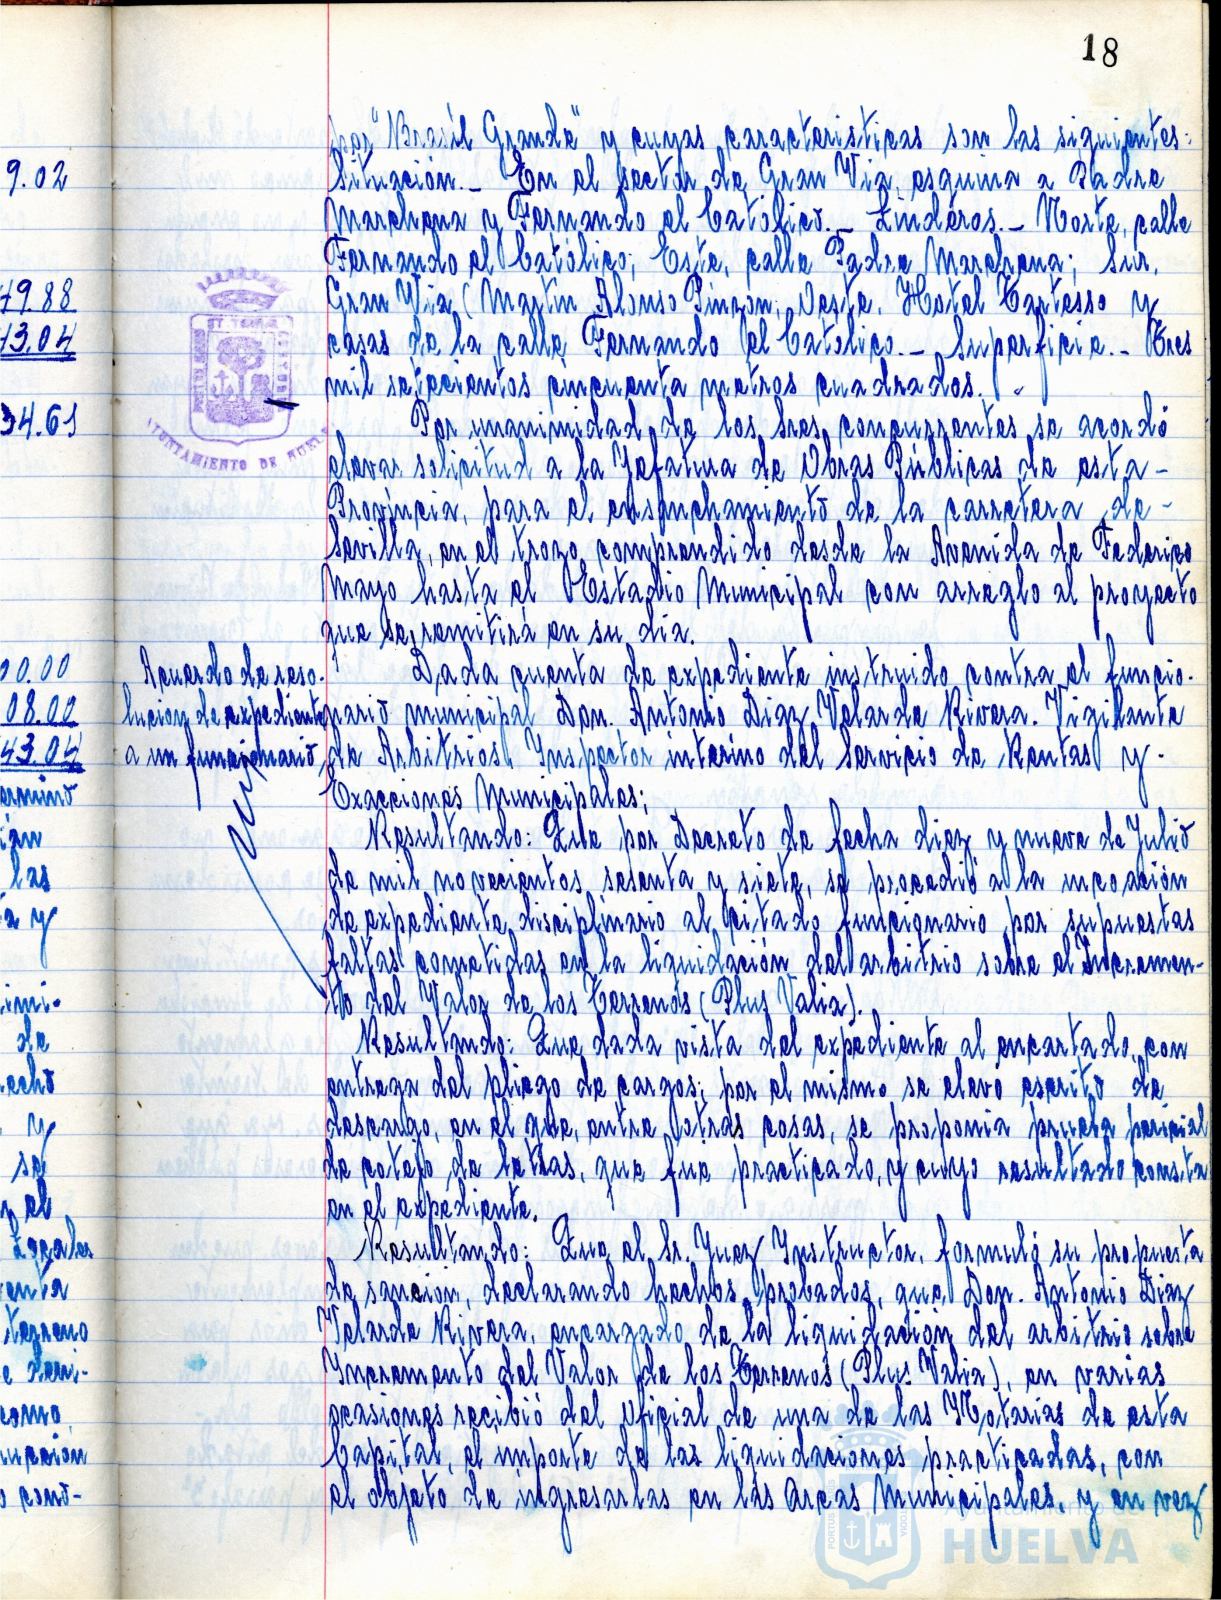 18
por "Brasil Grande" y cuyas caracteristicas son las siguientes:
Situación.- En el sector de Gran Via, esquina a Padre
Marchena y Fernando el Católico.- Linderos.- Norte, calle
Fernando el Católico; Este, calle Padre Marchena; Sur,
Gran Via (Martin Alonso Pinzon; Oeste, Hotel Tartesso y
casas de la calle Fernando el Católico.- Superficie.- Tres
mil setecientos cincuenta metros cuadrados.
Por unanimidad de los Sres. concurrentes se acordó
elevar solicitud a la Jefatura de Obras Públicas de esta-
Provincia, para el ensanchamiento de la carretera de-
Sevilla, en el trozo comprendido desde la Avenida de Federico
Mayo hasta el Estadio Municipal con arreglo al proyecto
que se remitirá en su dia.
Acuerdo de reso-
lucion de expediente
a un funcionario
Dada cuenta de expediente instruido contra el funcio-
nario municipal Don. Antonio Diaz Velarde Rivera. Vigilante
de Arbitrios, Inspector interino del Servicio de Rentas y-
Exacciones Municipales;
Resultando: Que por Decreto de fecha diez y nueve de Julio
de mil novecientos sesenta y siete, se procedió a la incoación
de expediente disciplinario al citado funcionario por supuestas
faltas cometidas en la liquidación del arbitrio sobre el Incremen-
to del Valor de los Terrenos (Plus Valia).
Resultando: Que dada vista del expediente al encartado, con
entrega del pliego de cargos; por el mismo se elevó escrito de
descargo, en el que, entre otras cosas, se proponia prueba pericial
de cotejo de letras, que fue practicado, y cuyo resultado consta
en el expediente.
Resultando: Que el Sr. Juez Instructor, formuló su propuesta
de sanción, declarando hechos probados, que, Don. Antonio Diaz
Velarde Rivera, encargado de la liquidación del arbitrio sobre
Incremento del Valor de los Terrenos (Plus Valia), en varias
ocasiones recibió del Oficial de una de las Notarias de esta
Capital, el importe de las liquidaciones practicadas, con
el objeto de ingresarlas en las Arcas Municipales, y en vez
9.02
79.88
13.04
34.61
00.00
08.00
43.04
las
y
de
y
se
el
Locales
terreno
como
AYUNTAMIENTO DE HUELVA
Ayuntamiento de
HUELVA